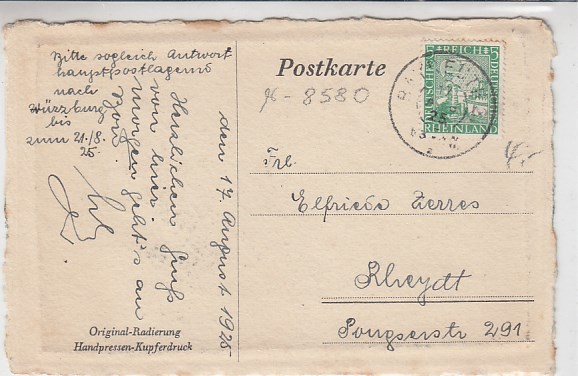 Bitte sogleich Antwort
hauptpostlagernd
nach
Würzburg
bis
zum 21./8.
25.
den 17. August 1925
Herzlichen Gruß
von hier.
morgen geht's an
Bord.
Original-Radierung
Handpressen-Kupferdruck
Postkarte
8580
DEUTSCHES REICH
5 5
RHEINLAND
Frl.
Elfriede Zerres
Rheydt
Pongserstr 291